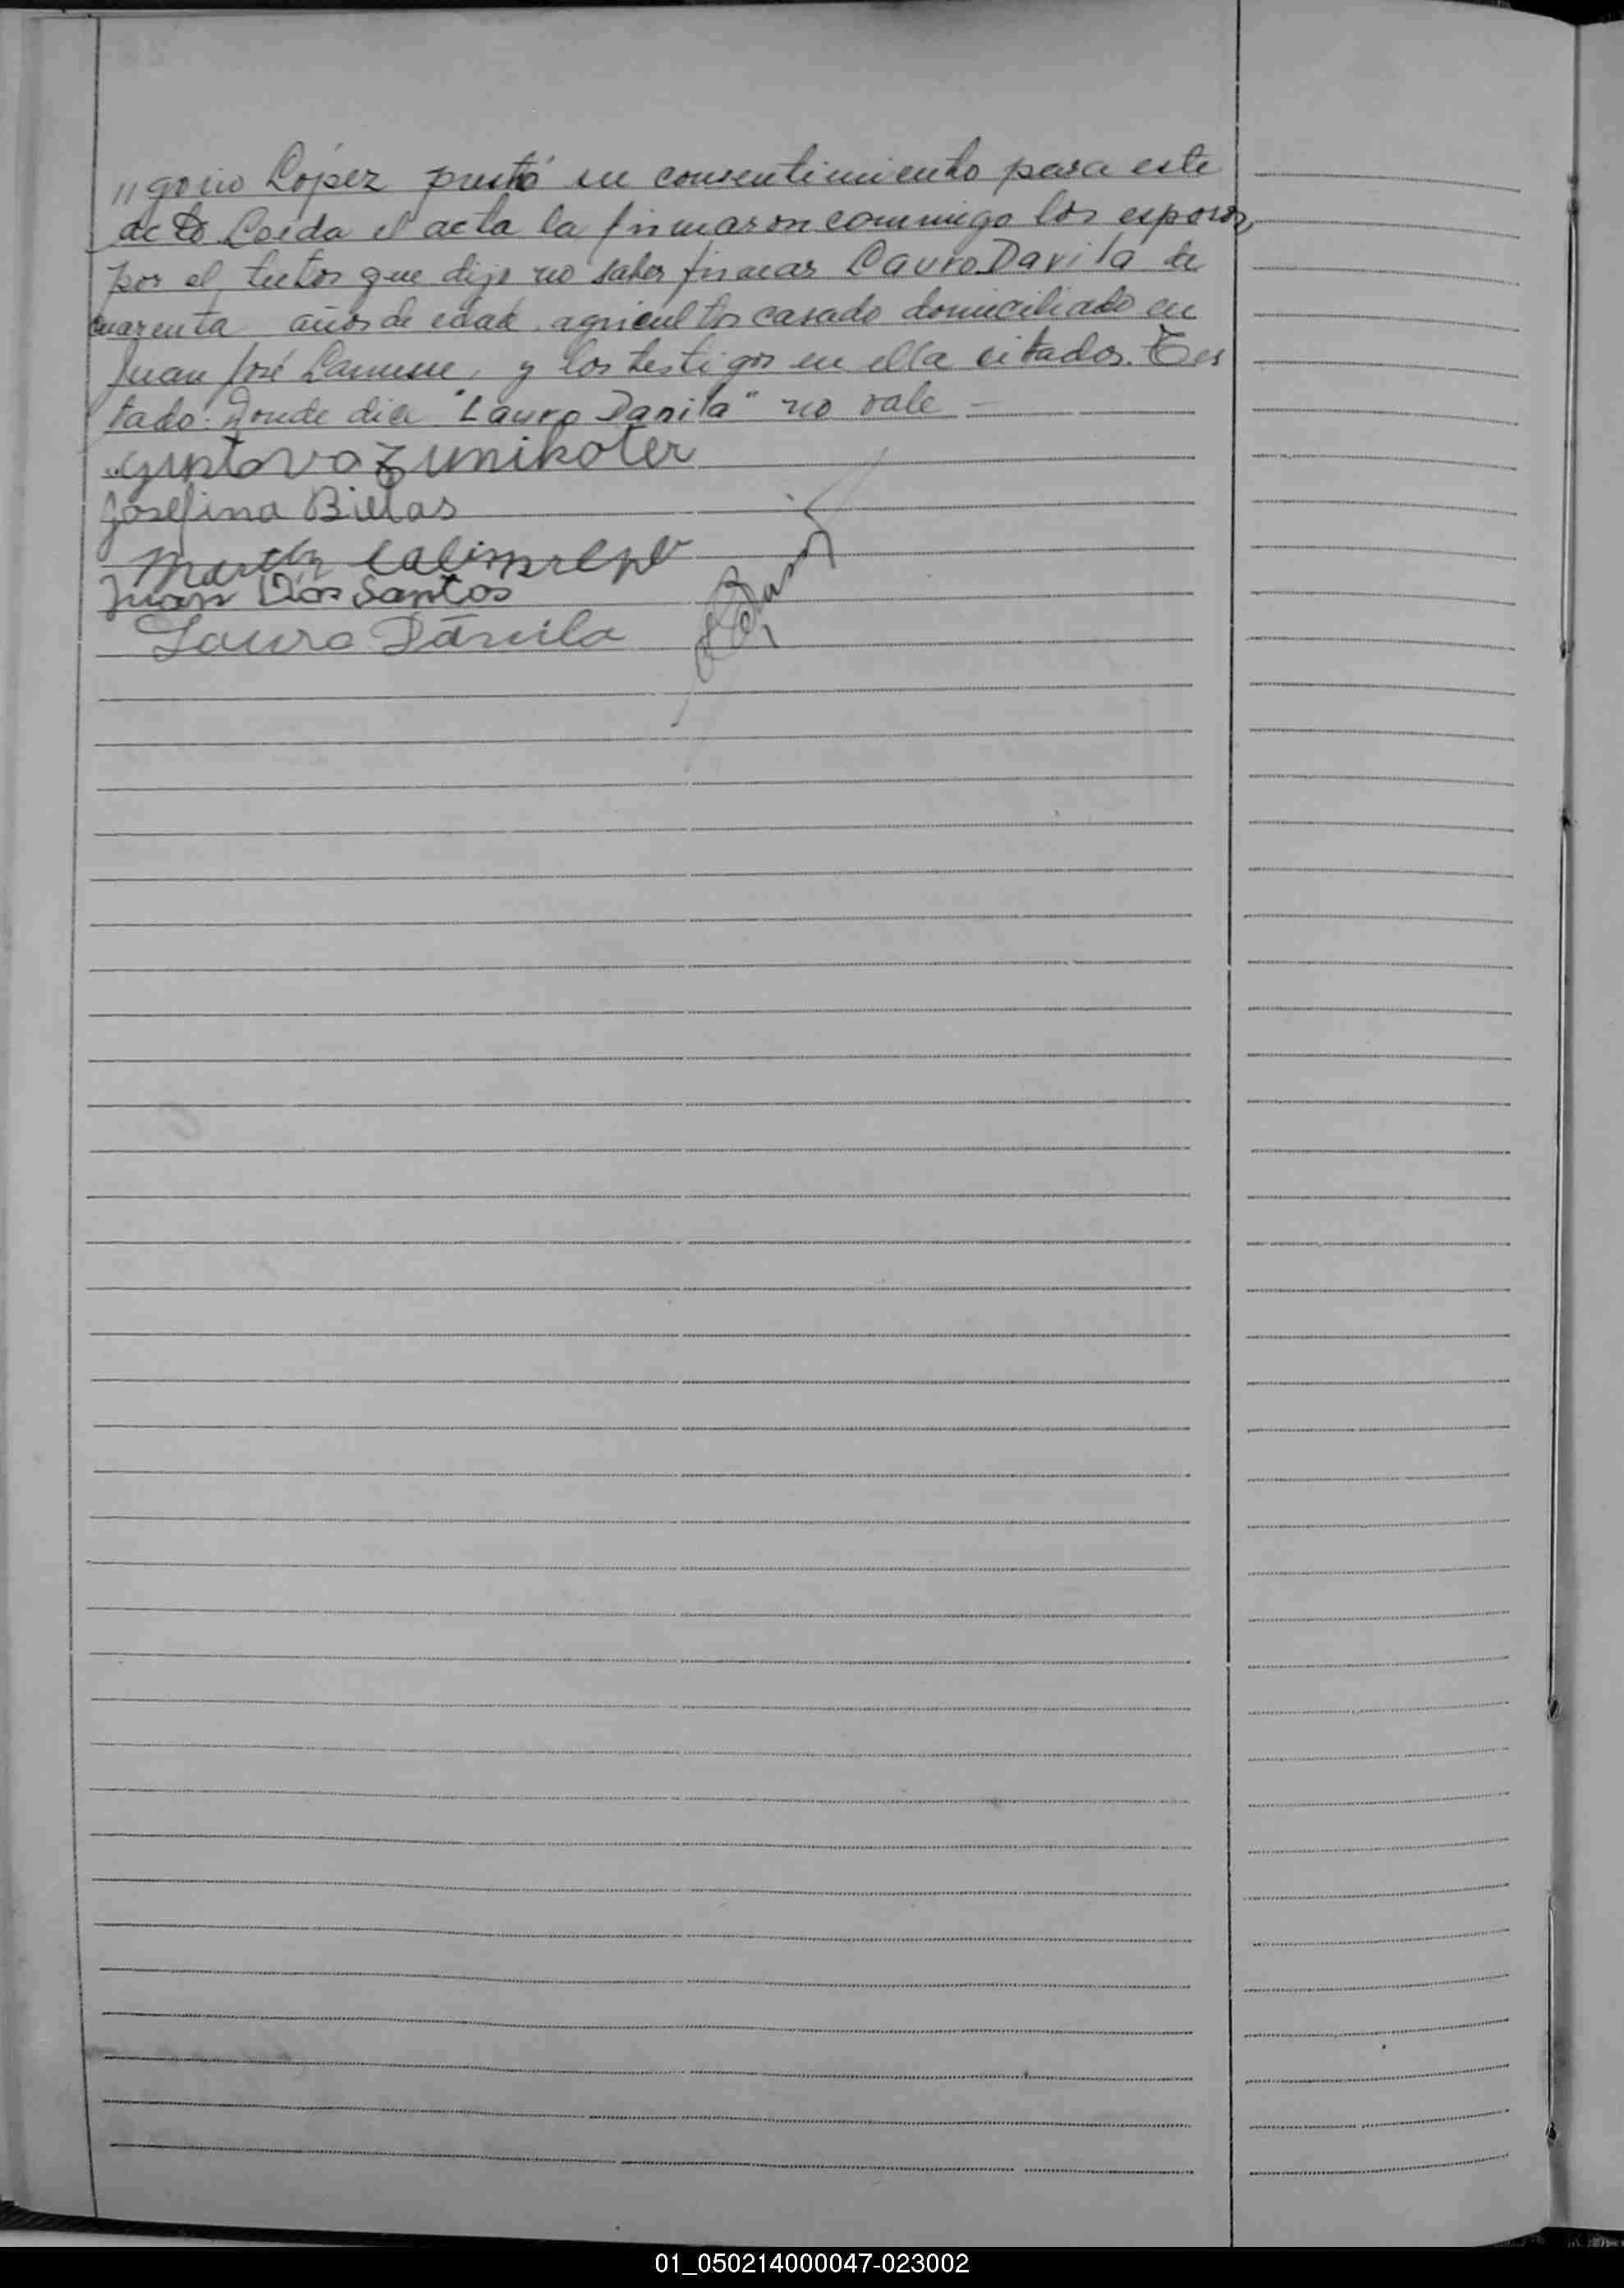 " gorio López prestó su consentimiento para este
acto Leída el acta la firmaron conmigo los esposos,
por el tutor que dijo no saber firmar Lauro Davila de
cuarenta años de edad, agricultor casado domiciliado en
Juan José Lanusse, y los testigos en ella citados. Tes
tado: Donde dice "Lauro Davila" no vale —
Gustavo Zunikoter
Josefina Bielas
Martín
Juan Dos Santos
Lauro Dávila
01_050214000047-023002